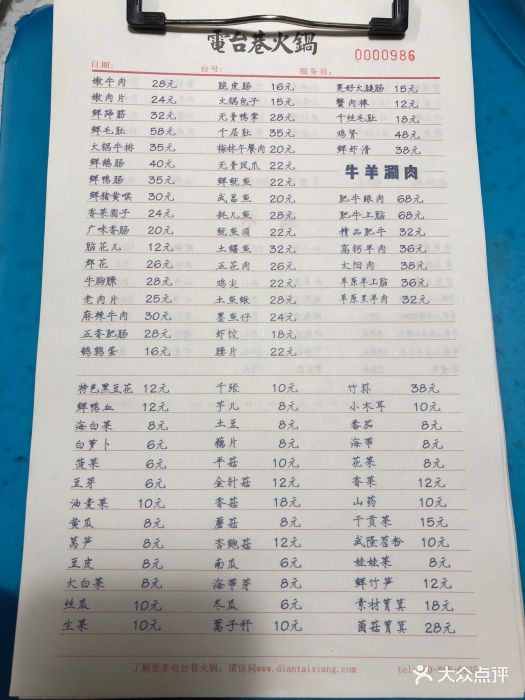 電台巷火鍋
0000986
日期： 台号： 服务员：
嫩牛肉 28元 脆皮肠 16元 美好火腿肠 15元
嫩肉片 24元 火锅包子 15元 蟹肉棒 12元
鲜蹄筋 32元 无骨鸭掌 28元 千丝毛肚 18元
鲜毛肚 58元 千层肚 35元 鸡肾 48元
火锅牛排 35元 梅林午餐肉 20元 鲜虾滑 38元
鲜鹅肠 40元 无骨凤爪 22元
牛羊涮肉
鲜鸭肠 35元 鲜鱿鱼 22元
鲜猪黄喉 30元 武昌鱼 20元 肥牛眼肉 68元
香菜圆子 24元 耗儿鱼 28元 肥牛上脑 68元
广味香肠 20元 鱿鱼须 22元 精品肥牛 32元
脑花儿 12元 土鳝鱼 32元 高钙羊肉 36元
郡花 26元 五花肉 26元 太阳肉 38元
牛胸膘 28元 鸡尖 22元 草原羊上脑 36元
老肉片 25元 土鱼鳅 28元 草原羔羊肉 32元
麻辣牛肉 30元 墨鱼仔 24元
五香肥肠 28元 虾饺 18元
鹌鹑蛋 16元 腰片 22元
特色黑豆花 12元 千张 10元 竹荪 38元
鲜鸭血 12元 芋儿 8元 小木耳 10元
海白菜 8元 土豆 8元 番茄 8元
白萝卜 6元 藕片 8元 海带 8元
菠菜 6元 平菇 10元 花菜 8元
豆芽 6元 金针菇 12元 香菜 12元
油麦菜 10元 香菇 18元 山药 10元
黄瓜 8元 蘑菇 8元 干贡菜 15元
莴笋 8元 杏鲍菇 12元 武隆苕粉 10元
豆皮 8元 南瓜 6元 娃娃菜 8元
大白菜 8元 海带芽 8元 鲜竹笋 12元
丝瓜 10元 冬瓜 6元 素材筲箕 18元
生菜 10元 蒿子秆 10元 菌菇筲箕 28元
了解更多电台巷火锅，请访问www.diantaixiang.com
大众点评